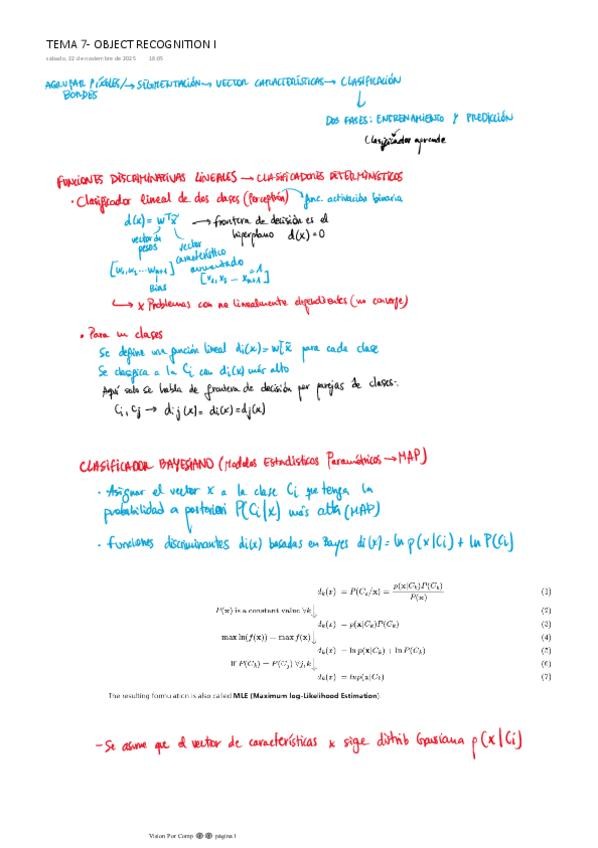 TEMA 7- OBJECT RECOGNITION I
sábado, 22 de noviembre de 2025 18:05
AGRUPAR PÍXELES/ → SEGMENTACIÓN → VECTOR CARACTERÍSTICAS → CLASIFICACIÓN
BORDES
DOS FASES: ENTRENAMIENTO Y PREDICCIÓN
Clasificador aprende
FUNCIONES DISCRIMINATIVAS LINEALES → CLASIFICADORES DETERMINÍSTICOS
· Clasificador lineal de dos clases (Perceptrón) → func. activación binaria
d(x) = wᵀx̃ → frontera de decisión es el
hiperplano d(x)=0
vector de pesos
vector característico aumentado
[w₁, w₂ ... wₙ₊₁]
Bias
[x₁, x₂ ... xₙ₊₁] =1
↳ x Problemas con no linealmente dependientes (no converge)
· Para m clases
Se define una función lineal di(x) = wᵢᵀx̃ para cada clase
Se clasifica a la Ci con di(x) más alto
Aquí solo se habla de frontera de decisión por parejas de clases:
Ci, Cj → dij(x) = di(x) = dj(x)
CLASIFICADOR BAYESIANO (Modelos Estadísticos Paramétricos → MAP)
· Asignar el vector x a la clase Ci que tenga la
probabilidad a posteriori P(Ci|x) más alta (MAP)
· Funciones discriminantes di(x) basadas en Bayes di(x) = ln p(x|Ci) + ln P(Ci)
dₖ(x) = P(Cₖ/x) = p(x|Cₖ)P(Cₖ) / P(x) (1)
P(x) is a constant value ∀k↓ (2)
dₖ(x) = p(x|Cₖ)P(Cₖ) (3)
max ln(f(x)) = max f(x)↓ (4)
dₖ(x) = ln p(x|Cₖ) + ln P(Cₖ) (5)
If P(Cₖ) = P(Cⱼ) ∀j,k↓ (6)
dₖ(x) = ln p(x|Cₖ) (7)
The resulting formulation is also called MLE (Maximum log-Likelihood Estimation).
- Se asume que el vector de características x sige distrib Gausiana p(x|Ci)
Vision Por Comp página 1